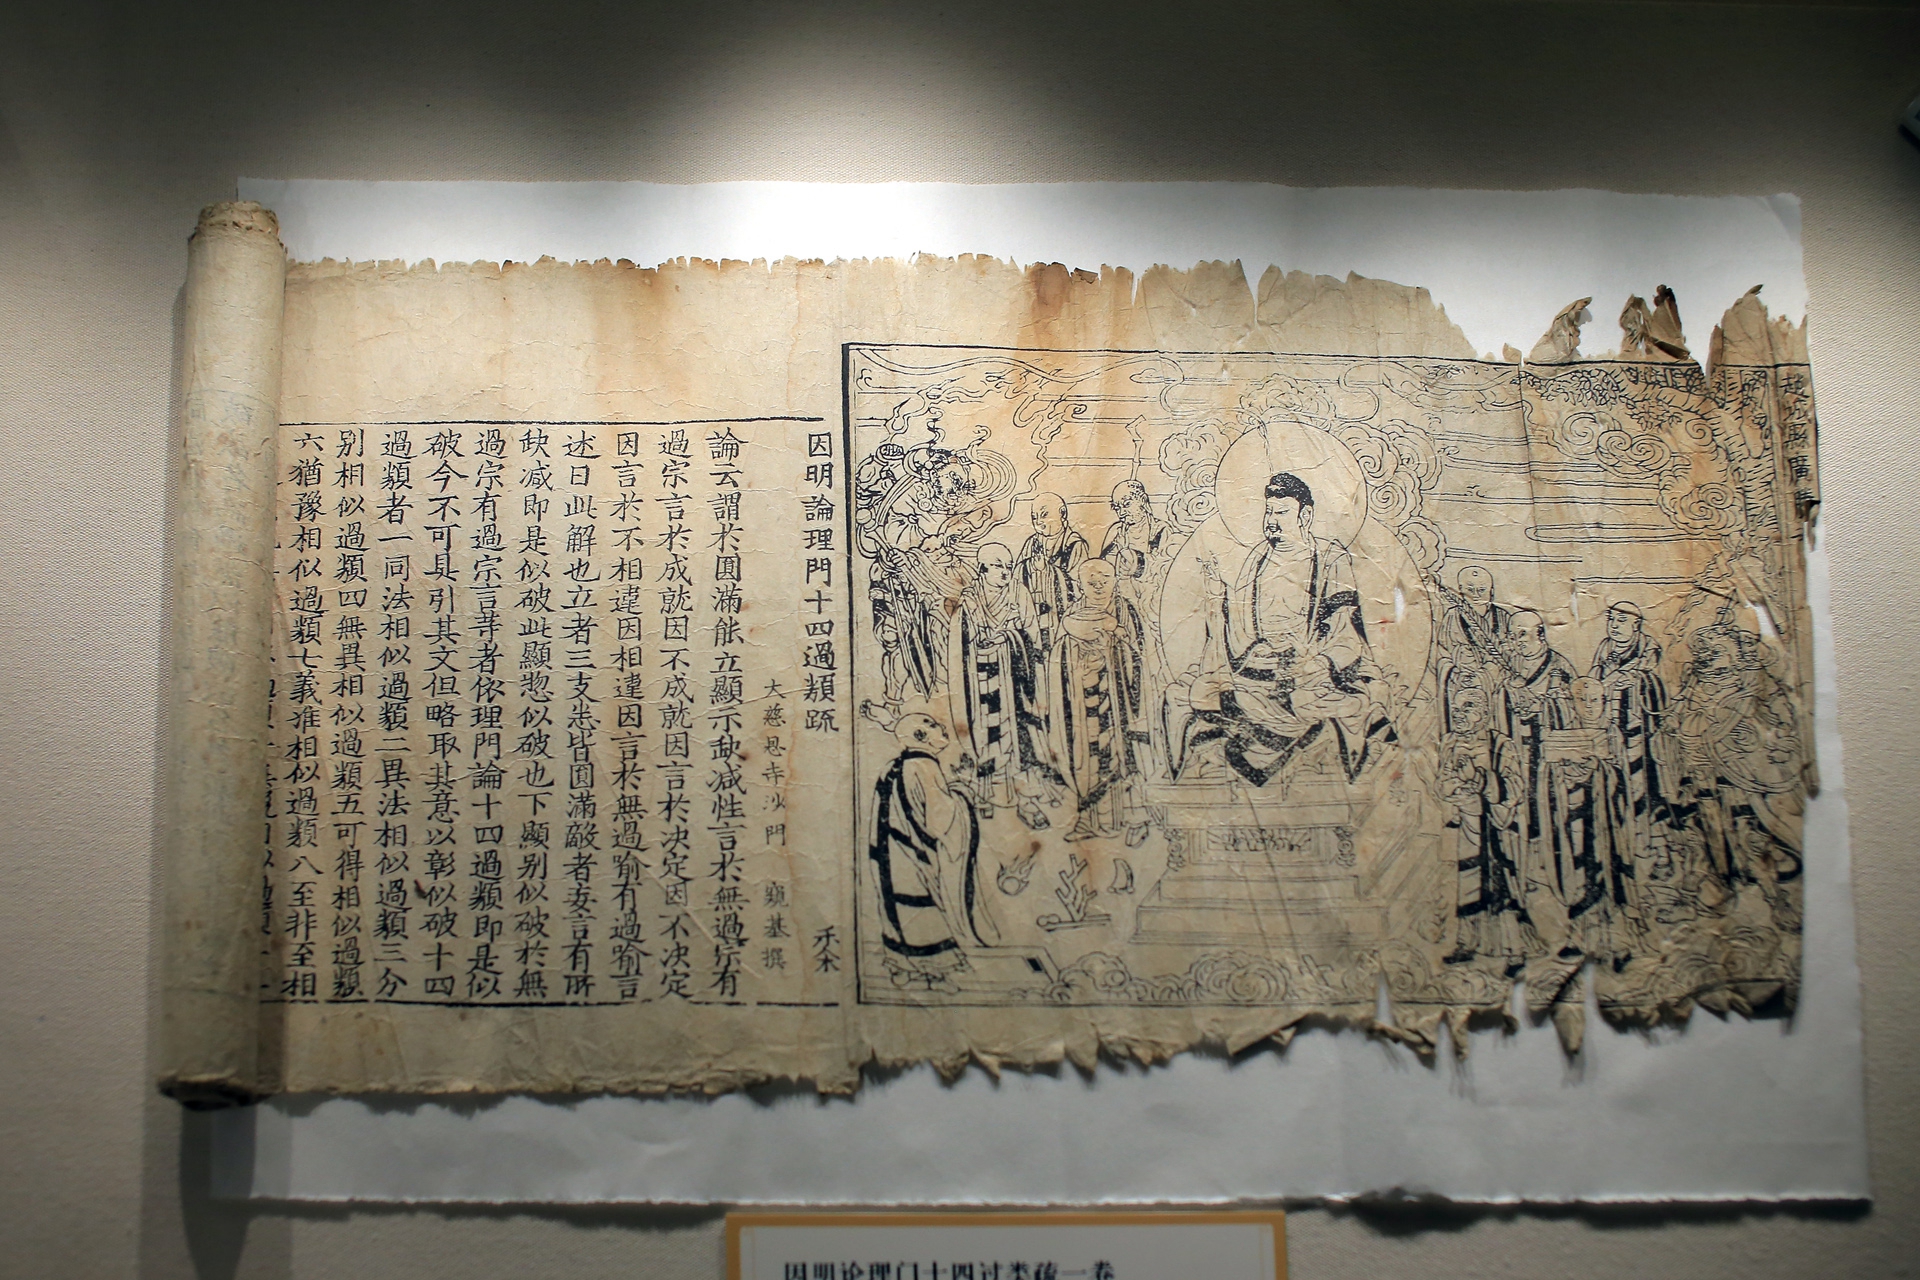 因明論理門十四過類疏
大慈恩寺沙門 窺基撰
論云謂於圓滿能立顯示缺减性言於無過宗有
過宗言於成就因不成就因言於决定因不决定
因言於不相違因相違因言於無過喻有過喻言
述曰此解也立者三支悉皆圓滿敵者妄言有所
缺减即是似破此顯惣似破也下顯别似破於無
過宗有過宗言等者依理門論十四過類即是似
破今不可具引其文但略取其意以彰似破十四
過類者一同法相似過類二異法相似過類三分
别相似過類四無異相似過類五可得相似過類
六猶豫相似過類七義准相似過類八至非至相
因明论理门十四过类疏一卷